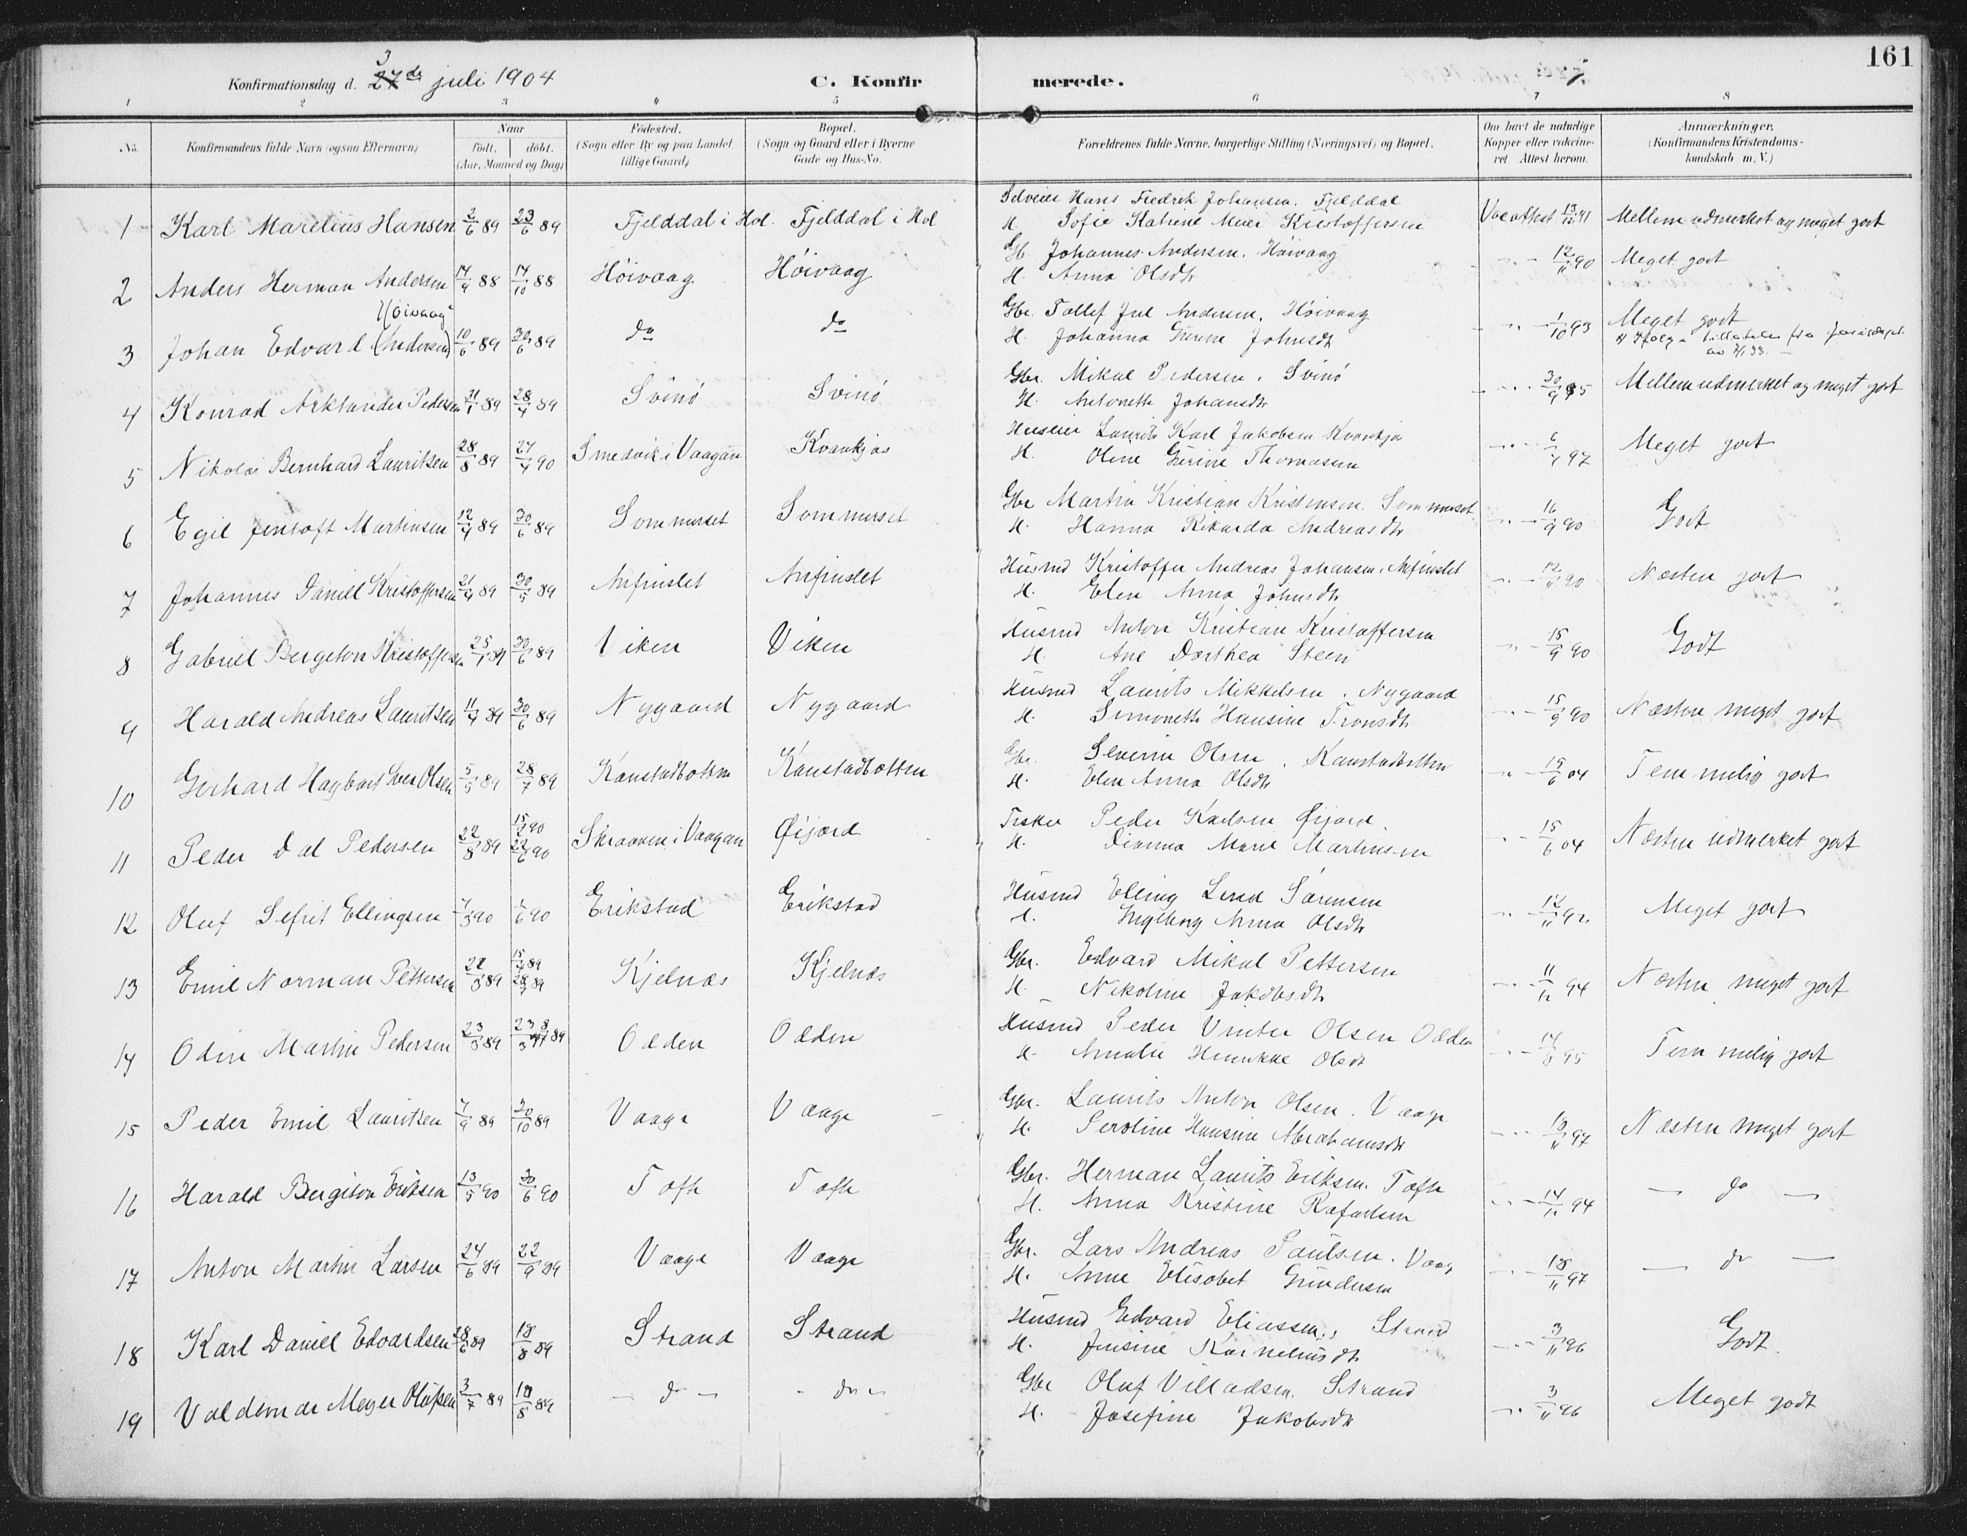 161
3
Konfirmationsdag d. 27de juli 1904 C. Konfirmerede.
1 2 3 4 5 6 7 8
No. Konfirmandens fulde Navn (ogsaa Efternavn) Naar født. døbt. (Aar, Maaned og Dag) Fødested. (Sogn eller By og paa Landet tillige Gaard) Bopæl. (Sogn og Gaard eller i Byerne Gade og Hus-No. Forældrenes fulde Navne, borgerlige Stilling (Næringsvei) og Bopæl. Om havt de naturlige Kopper eller vaccineret. Attest herom. Anmærkninger. (Konfirmandens Kristendomskundskab m. V.)
1 Karl Marelius Hansen 2/6 89 23/6 89 Fjelddal i Hol Fjelddal i Hol Selveier Hans Fredrik Johansen. Fjelddal Mellem udmerket og meget godt
H. Sofie Katrine Meier Kristoffersen
2 Anders Herman Andersen 14/9 88 14/10 88 Høivaag Høivaag Gbr Johannes Andersen. Høivaag 12/11 90 Meget godt
H. Anna Olsdtr
Høivaag
3 Johan Edvard (Andersen) 10/6 89 /6 89 do do Gbr. Tollef Juel Andersen, Høivaag 1/10 93 Meget godt
H. Johanna Johnsdtr
4 Konrad Arklander Pedersen 21/1 89 28/4 89 Svinø Svinø Gbr. Mikal Pedersen. Svinø 30/9 Mellem udmerket og meget godt
H. Antonette Johansdtr
5 Nikolai Bernhard Lauritsen 28/8 89 27/4 90 Smedvik i Vaagan Kvankjos Huseier Laurits Karl Jakobsen 97 Meget godt
H. Oline Thomasen
6 Egil Jentoft Martinsen 12/4 89 30/6 89 Sommerset Sommerset Gbr Martin Kristian Kristensen. Sommerset 16/9 90 Godt
H. Hanna Rikarda Andreasdtr
7 Johannes Daniel Kristoffersen 21/4 89 30/5 89 Anfinslet Anfinslet Husmd Kristoffer Andreas Johansen. Anfinslet 12/11 90 Næsten godt
H. Elen Anna Johnsdtr
8 Gabriel Bergeton Kristoffersen 25/1 89 30/6 89 Viken Viken Husmd Anton Kristian Kristoffersen 15/9 90 Godt
H. Ane Dorthea Steen
9 Harald Andreas Lauritsen 11/4 89 30/6 89 Nygaard Nygaard Husmd Laurits Mikkelsen. Nygaard 15/9 90 Næsten meget godt
H. Simonette Hansine Tronsdtr
10 Gerhard Hagbart Olsen 5/5 89 28/7 89 Kanstadbotten Kanstadbotten Gbr. Severin Olsen. Kanstadbotten 15/6 04 Temmelig godt
H. Elen Anna Olsdtr
11 Peder Dal Pedersen 22/8 89 15/2 90 22/6 90 Skraaven i Vaagan Øijord Fisker Peder Karlsen Øijord. 15/6 04 Næsten udmerket godt
H. Dianna Marie Martinsen
12 Oluf Sefrit Ellingsen 7/3 90 1/6 90 Erikstad Erikstad Husmd Elling Lind Sørensen 12/11 Meget godt
H. Ingeborg Anna Olsdtr
13 Emil Norman Pettersen 22/3 89 28/7 89 Kjelnæs Kjelnæs Gbr. Edvard Mikal Pettersen 11/11 94 Næsten meget godt
H. Nikoline Jakobsdtr
14 Odin Martin Pedersen 23/3 89 Olden Olden Husmd Peder Vinter Olsen Olden 14/8 95 Temmelig godt
H. Amalie Henrikke Olsdt
15 Peder Emil Lauritsen 7/9 89 20/10 89 Vaage Vaage Gbr. Laurits Anton Olsen. Vaage 18/11 97 Næsten meget godt
H. Peroline Hansine Abrahamsdtr
16 Harald Bergiton Eriksen 13/5 90 30/6 90 Tofte Tofte Gbr. Herman Laurits Eriksen. Tofte 14/11 94 — do —
H. Anna Kristine Rafaelsen
17 Anton Martin Larsen 24/6 89 22/9 89 Vaage Vaage Gbr. Lars Andreas Paulsen. Vaag 18/11 97 — do —
H. Anne Elisabet Gundersen
18 Karl Daniel Edvardsen 28/6 89 18/8 89 Strand Strand Husmd Edvard Eliassen, Strand 3/11 96 Godt.
H. Jensine Korneliusdtr
19 Valdemar Meyer Olufsen 3/7 89 18/8 89 — do — — do — Gbr Oluf Villadsen. Strand 3/11 96 Meget godt
H. Josefine Jakobsdtr